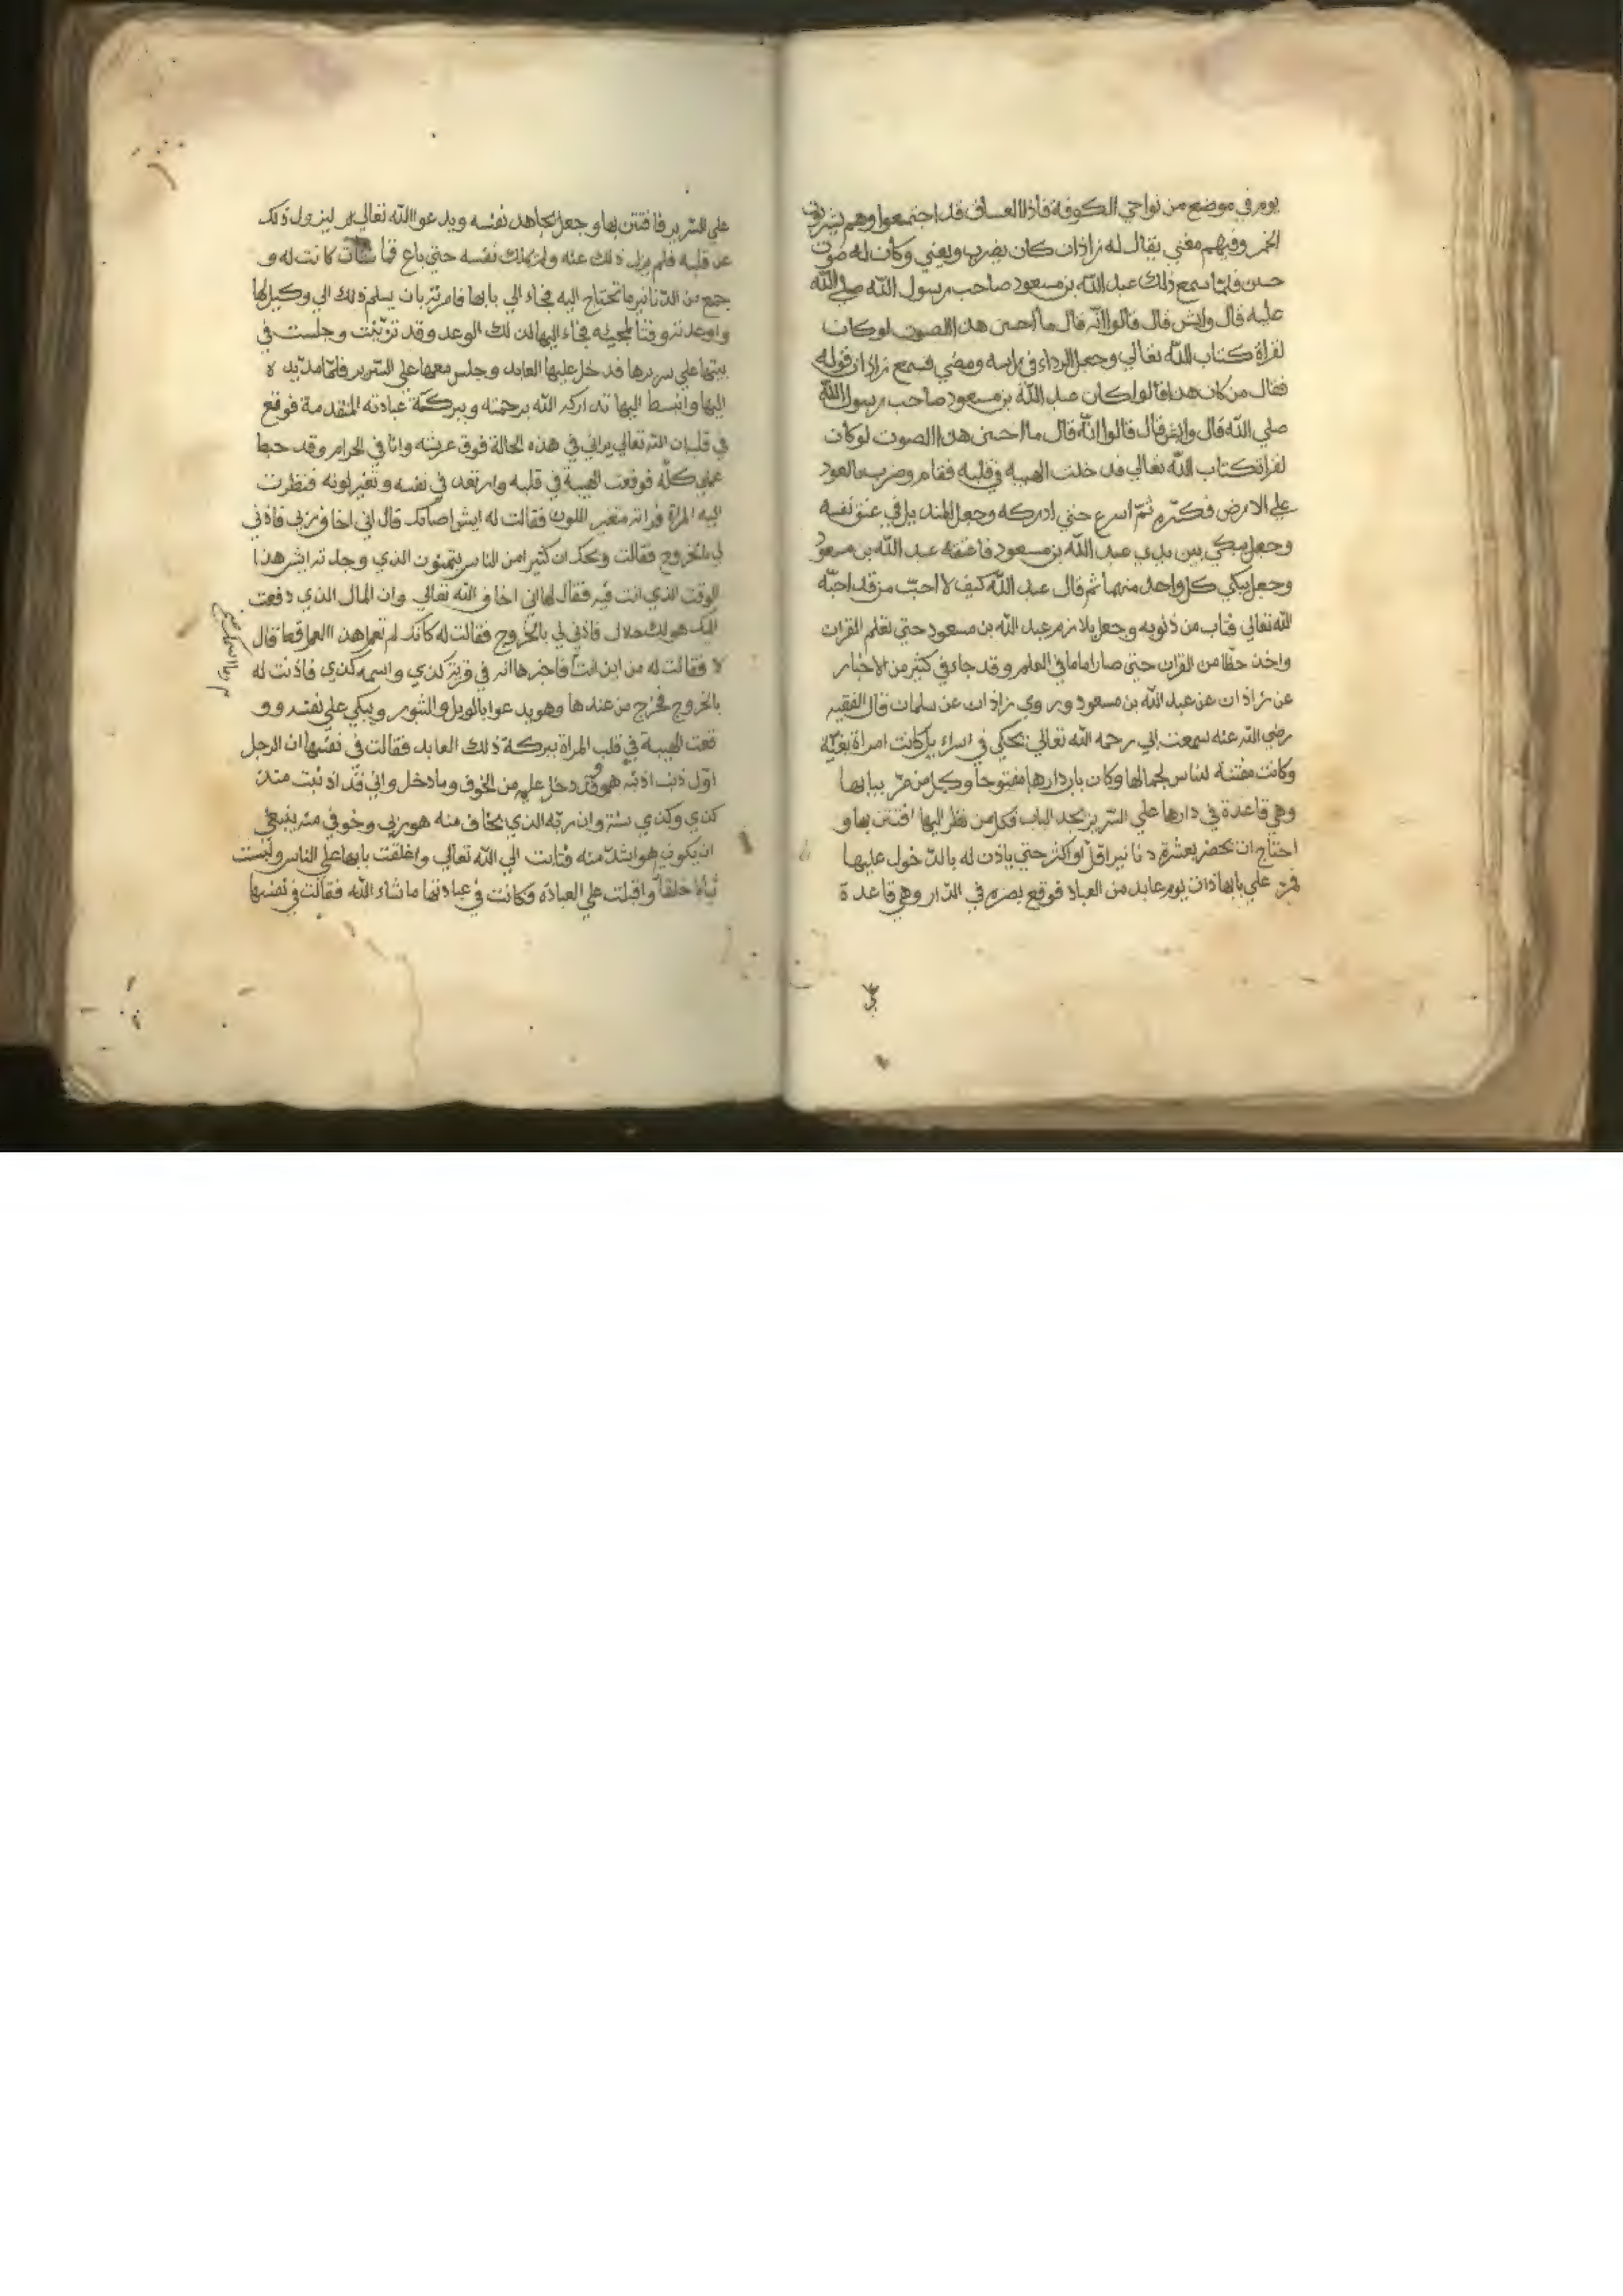 يوم في موضع من نواحي الكوفة فاذا الفساق قد اجتمعوا وهم يشربون
الخمر وفيهم مغني يقال له زاذان كان يضرب ويغني وكان له صوت
حسن فلما سمع ذلك عبد الله بن مسعود صاحب رسول الله صلي الله
عليه قال وايش قال قالوا انه قال ما احسن هذا الصوت لو كان
لقراة كتاب الله تعالي وجعل الرداء في راسه ومضي فسمع زاذان قوله
فقال من كان هذا قالوا كان عبد الله بن مسعود صاحب رسول الله
صلي الله قال وايش قال قالوا انه قال ما احسن هذا الصوت لو كان
لقراة كتاب الله تعالي فدخلت الهيبة في قلبه فقام وضرب بالعود
علي الارض فكسره ثم اسرع حتي ادركه وجعل المنديل في عنق نفسه
وجعل يبكي بين يدي عبد الله بن مسعود فاعتقه عبد الله بن مسعود
وجعل يبكي كل واحد منهما ثم قال عبد الله كيف لا احب من قد احبه
الله تعالي فتاب من ذنوبه وجعل يلازم عبد الله بن مسعود حتي تعلم القران
واخذ حظا من القران حتي صار اماما في العلم وقد جاء في كثير من الاخبار
عن زاذان عن عبد الله بن مسعود وروي زاذان عن سلمان قال الفقيه
رضي الله عنه سمعت ابي رحمه الله تعالي يحكي في اسراءيل كانت امراة بغية
وكانت مفتنة للناس لجمالها وكان باب دارها مفتوحا وكل من مر ببابها
وهي قاعدة في دارها علي السرير بحد الباب فكل من نظر اليها افتتن بها و
احتاج ان يحضر بعشرة دنانير اقل او اكثر حتي ياذن له بالدخول عليها
فمر علي بابها ذات يوم عابد من العباد فوقع بصره في الدار وهي قاعدة
علي السرير فافتتن بها وجعل يجاهد نفسه ويدعوا الله تعالي ليزول ذلك
عن قلبه فلم يزل ذلك عنه ولم يملك نفسه حتي باع قماشات كانت له و
جمع من الدنانير ما تحتاج اليه فجاء الي بابها فامرته بان يسلم ذلك الي وكيلها
واوعدته وقتا لمجيئه فجاء اليها لذلك الوعد وقد تزينت وجلست في
بيتها علي سريرها فدخل عليها العابد وجلس معها علي السرير فلما مد يده
اليها وانبسط اليها تداركه الله برحمته وببركة عبادته المتقدمة فوقع
في قلبه ان الله تعالي يراني في هذه الحالة فوق عرشه وانا في الحرام وقد حبط
عملي كله فوقعت الهيبة في قلبه وارتعد في نفسه وتغير لونه فنظرت
اليه المراة فراته متغير اللون فقالت له ايش اصابك قال اني اخاف ربي فاذني
لي بالخروج فقالت ويحك ان كثيرا من الناس يتمنون الذي وجدته ايش هذا
الوقت الذي انت فيه فقال لها اني اخاف الله تعالي وان المال الذي دفعت
اليك هو لك حلال فاذني لي بالخروج فقالت له كانك لم تعمل هذا العمل قط قال
لا فقالت له من اين انت فاخبرها انه في قرية كذي واسمه كذي فاذنت له
بالخروج فخرج من عندها وهو يدعوا بالويل والثبور ويبكي علي نفسه وو
قعت الهيبة في قلب المراة ببركة ذلك العابد فقالت في نفسها ان الرجل
اول ذنب اذنبه هو وقد دخل عليه من الخوف وما دخل واني قد اذنبت منذ
كذي وكذي سنة وان ربه الذي يخاف منه هو ربي وخوفي منه ينبغي
ان يكون هو اشد منه فتابت الي الله تعالي واغلقت بابها علي الناس ولبست
ثيابا خلقا واقبلت علي العبادة فكانت في عبادتها ما شاء الله فقالت في نفسها